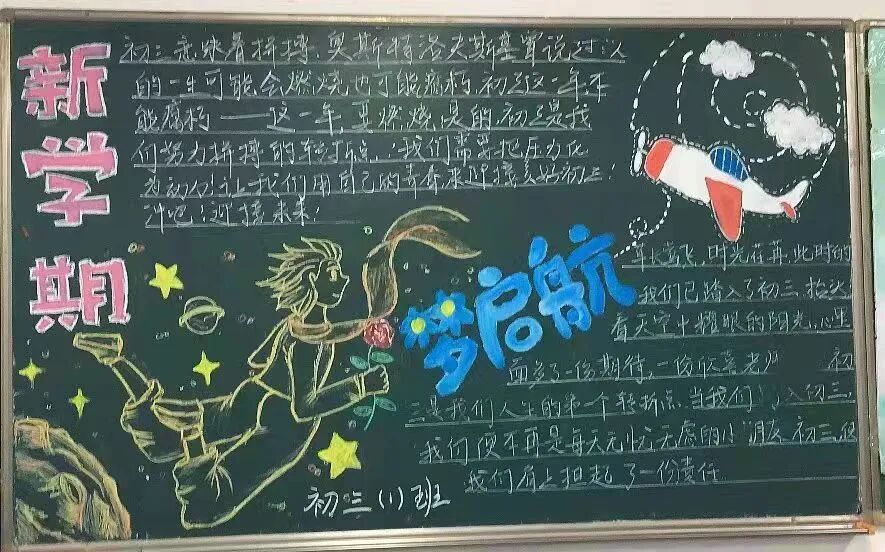 新学期
初三意味着拼搏,奥斯特洛夫斯基曾说过:人
的一生可能会燃烧也可能腐朽,初三这一年不
能腐朽——这一年,要燃烧,是的,初三是我
们努力拼搏的转折点,我们需要把压力化
为动力!让我们用自己的青春来迎接美好初三!
冲吧!迎接未来!
梦启航
草长莺飞,时光荏苒,此时的
我们已踏入了初三,抬头
看天空中耀眼的阳光,心里
面多了一份期待,一份欣喜 初
三是我们人生的第一个转折点,当我们 入初三,
我们便不再是每天无忧无虑的小朋友,初三,使
我们肩上担起了一份责任
初三(1)班